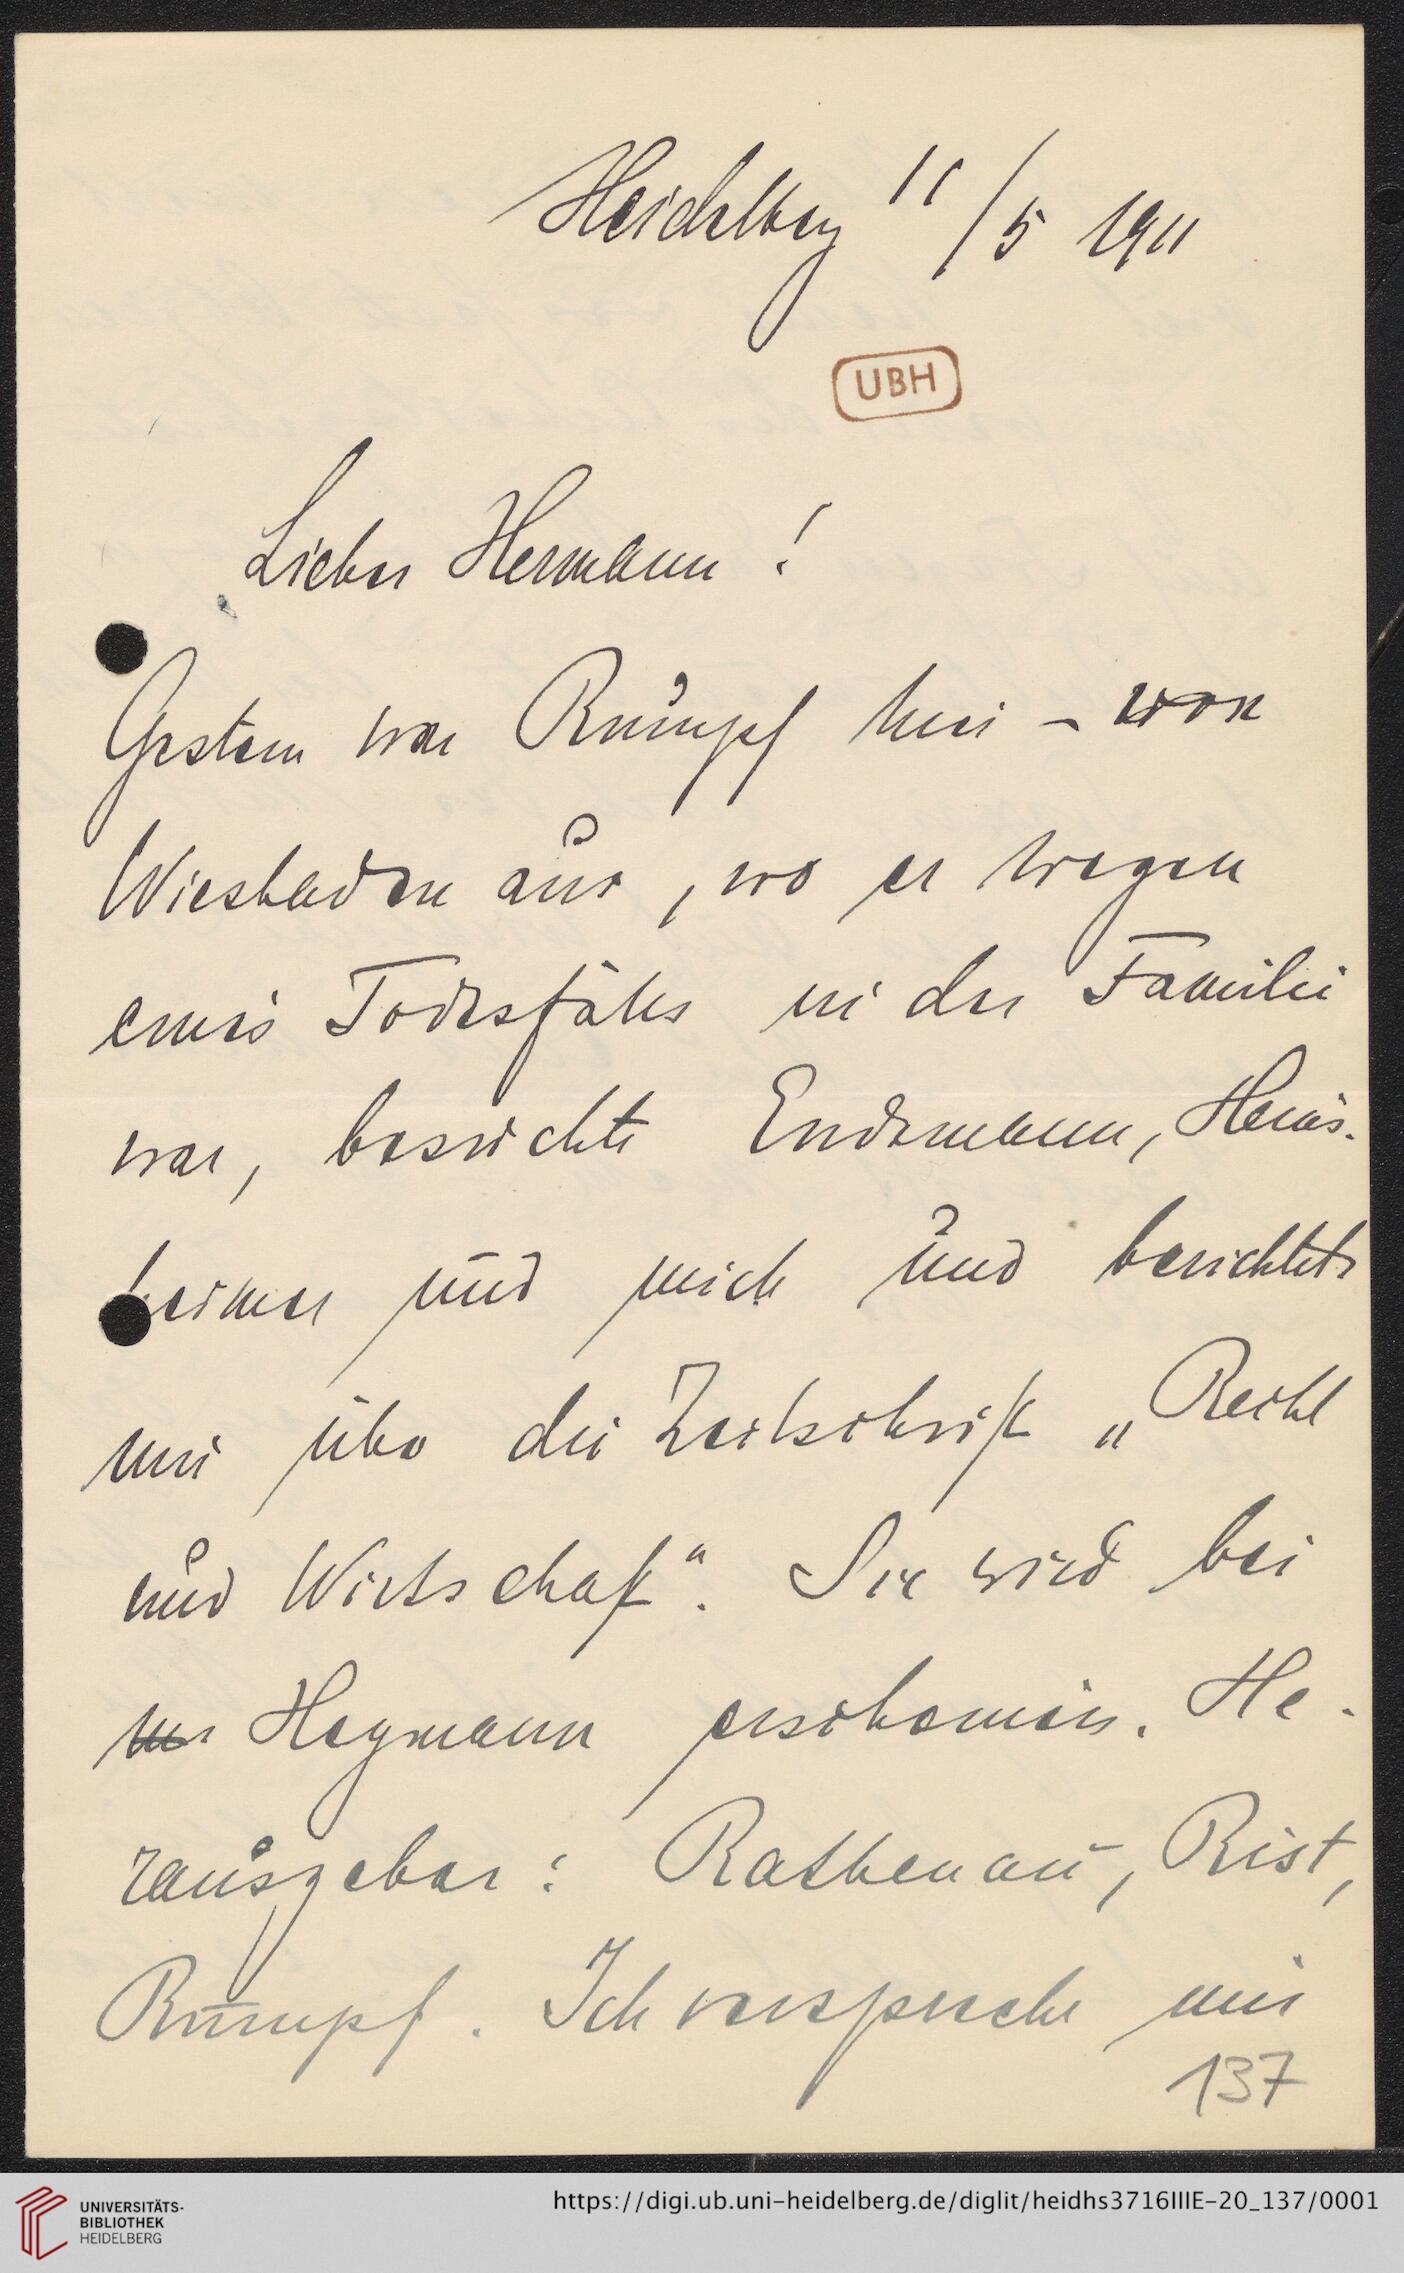 Heidelberg 11/5 1911
UBH
Lieber Hermann!
Gestern war Rumpf hier – von
Wiesbaden aus, wo er wegen
eines Todesfalles in der Familie
war, besuchte Endemann, Heins-
heimer und mich und berichtete
mir über die Zeitschrift „Recht
und Wirtschaft“. Sie wird bei
Heymann erscheinen. He-
rausgeber: Rathenau, Rist,
Rumpf. Ich verspreche mir
137
UNIVERSITÄTS-
BIBLIOTHEK
HEIDELBERG
https://digi.ub.uni-heidelberg.de/diglit/heidhs3716IIIE-20_137/0001